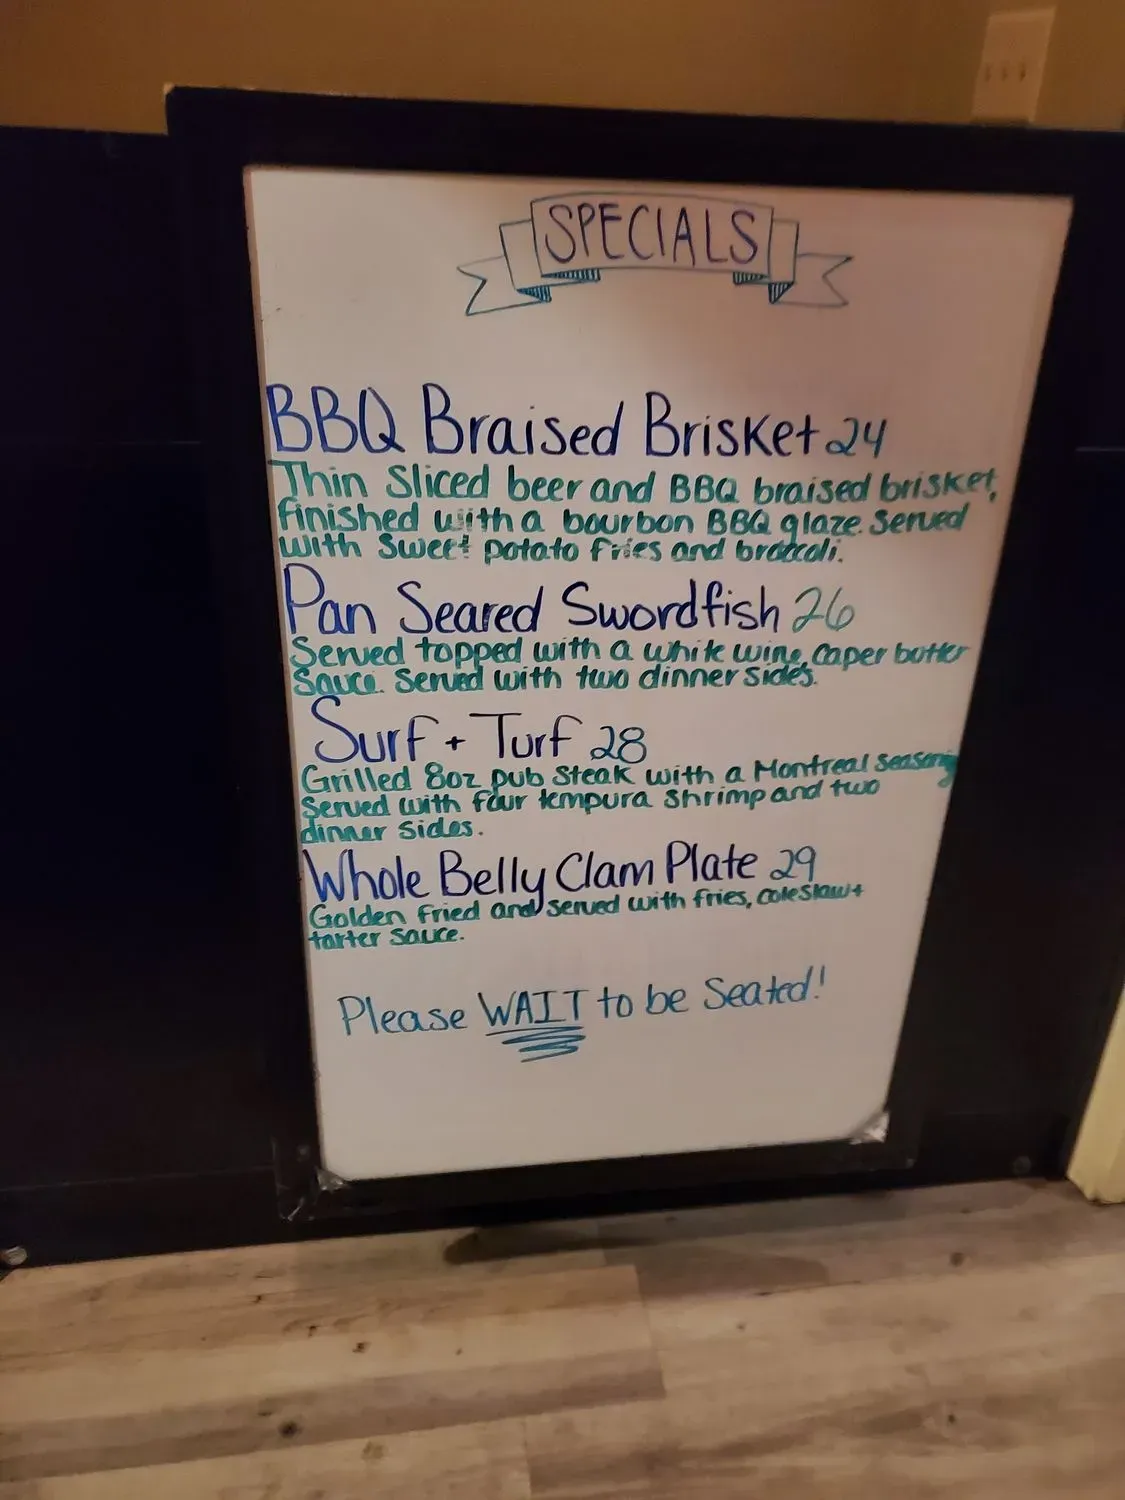 SPECIALS
BBQ Braised Brisket 24
Thin Sliced beer and BBQ braised brisket,
finished with a bourbon BBQ glaze. Served
with sweet potato fries and broccoli.
Pan Seared Swordfish 26
Served topped with a white wine, caper butter
sauce. Served with two dinner sides.
Surf + Turf 28
Grilled 8oz pub steak with a Montreal seasoning
Served with four tempura shrimp and two
dinner sides.
Whole Belly Clam Plate 29
Golden fried and served with fries, coleslaw +
tarter sauce.
Please WAIT to be Seated!